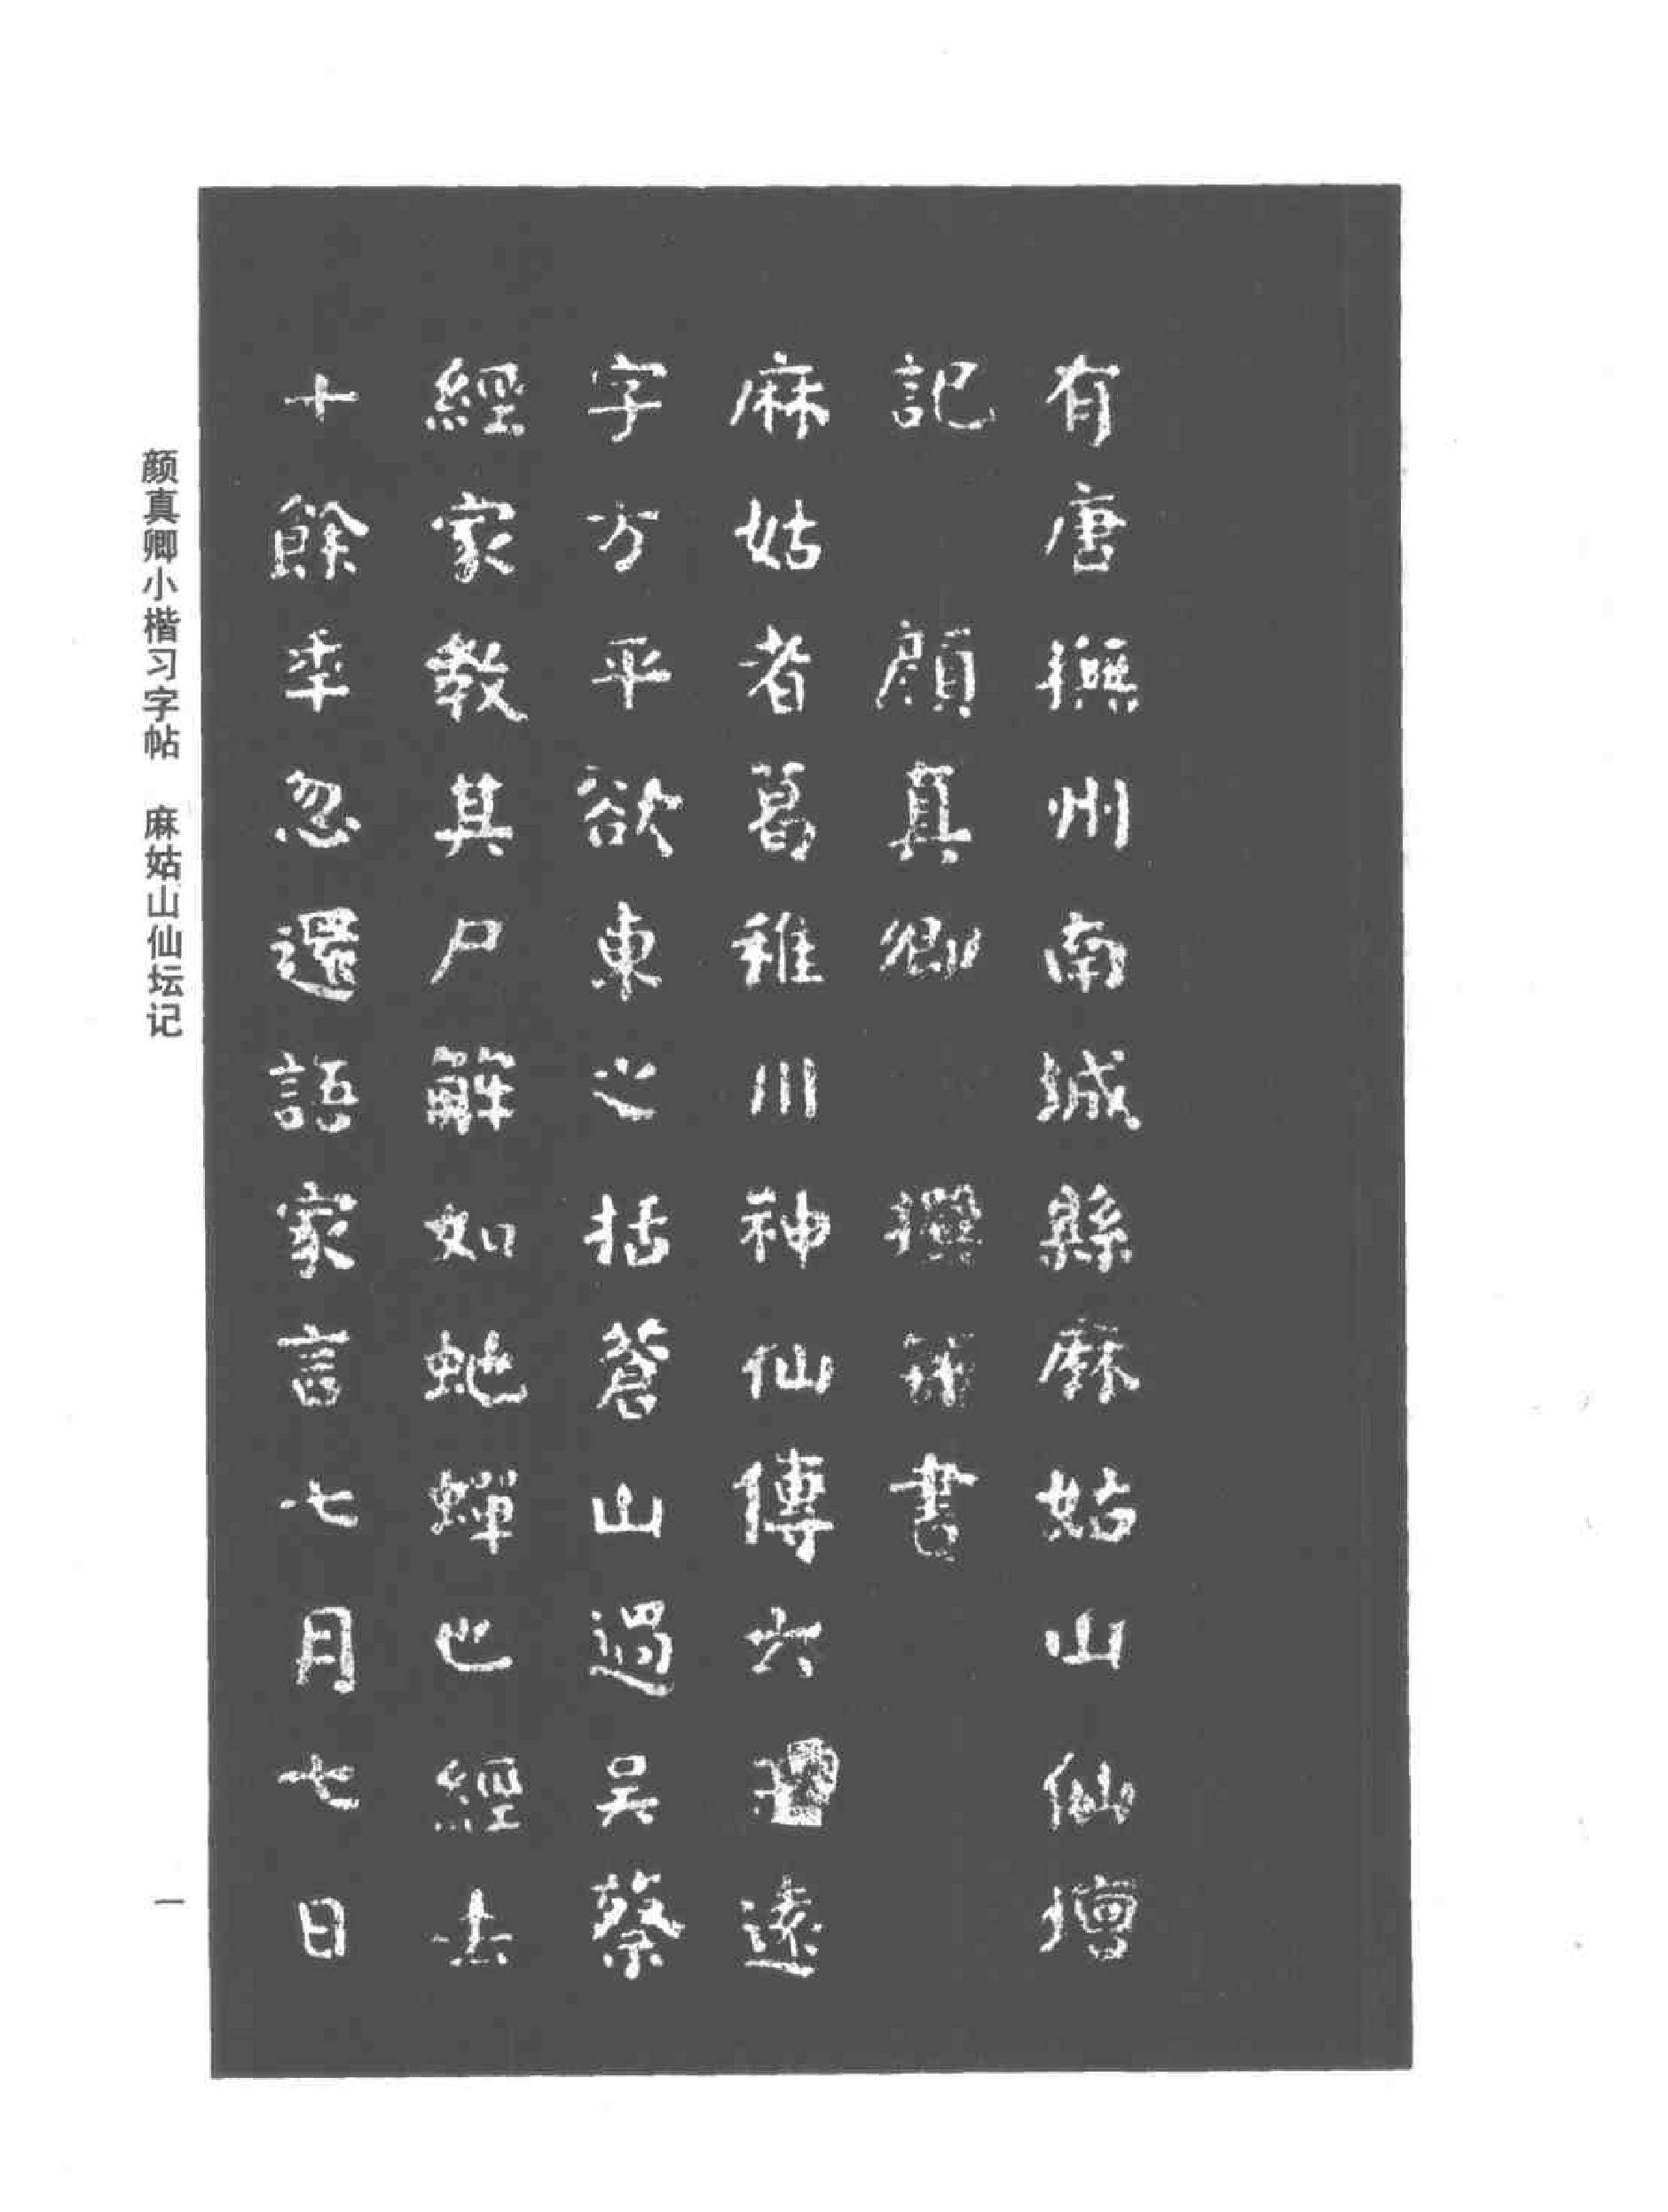 有唐撫州南城縣麻姑山仙壇
記 顏真卿 撰 書
麻姑者葛稚川神仙傳六遠
字方平欲東之括蒼山過吳蔡
經家教其尸解如虵蟬也經去
十餘年忽還語家言七月七日
颜真卿小楷习字帖 麻姑山仙坛记
一